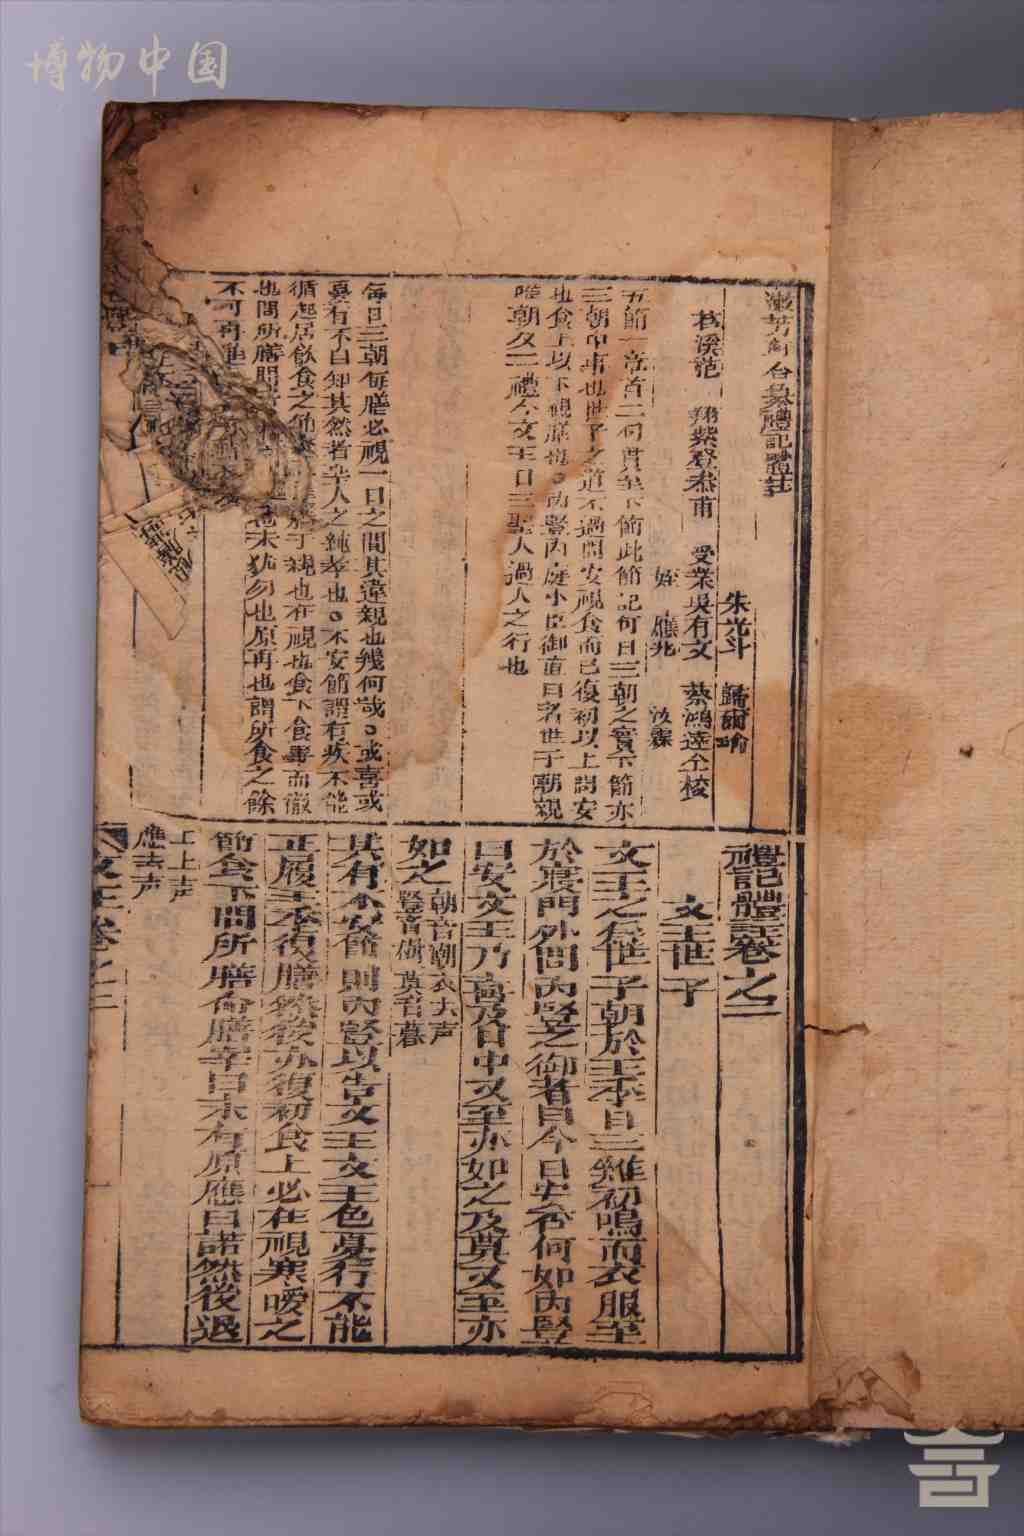 博物中国
漱芳軒合纂禮記體註
苕溪范 翔紫登叅甫 受業吳有文 蔡鴻逵仝梭
朱光斗 歸爾瑜
姪 應兆 汝霖
五節一章首二句貫至下節此節記何日三朝之實下節亦
三朝中事也世子之道不過問安視食而已復初以上問安
也食上以下視膳也。內豎內庭小臣御直日者世子朝親
唯朝夕二禮今文王日三聖人過人之行也
每日三朝每膳必視一日之間其違親也幾何哉。或喜或
真有不自知其然者聖人之純孝也。不安節謂有疾不能
循起居飲食之
也問所膳問
不可再進
于親也在視也食下食畢而徹
也末猶勿也原再也謂所食之餘
禮記體註卷之三
文王世子
文王之為世子朝於王季日三雞初鳴而衣服至
於寢門外問內豎之御者曰今日安否何如內豎
曰安文王乃喜及日中又至亦如之及莫又至亦
如之 朝音潮衣去声
豎音樹莫音暮
其有不安節則內豎以告文王文王色憂行不能
正履王季復膳然後亦復初食上必在視寒煖之
節食下問所膳命膳宰曰末有原應曰諾然後退
上上声
應去声
文王卷之三